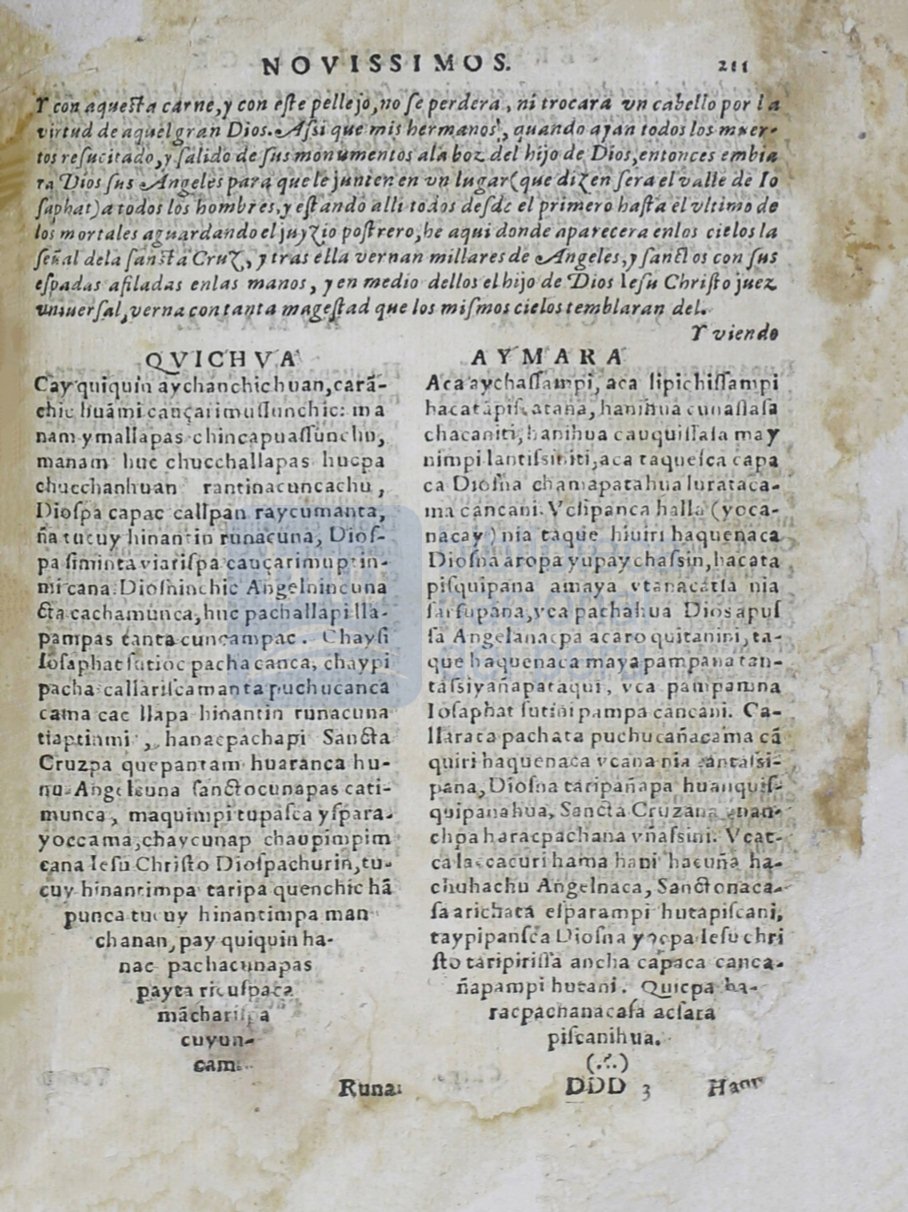 NOVISSIMOS. 211
Y con aquesta carne, y con este pellejo, no se perdera, ni trocara vn cabello por la
virtud de aquel gran Dios. Assi que mis hermanos, quando ayan todos los muer-
tos resucitado, y salido de sus monumentos ala boz del hijo de Dios, entonces embia
ra Dios sus Angeles para que le junten en vn lugar (que dizen sera el valle de Io
saphat) a todos los hombres, y estando alli todos desde el primero hasta el vltimo de
los mortales aguardando el juyzio postrero, he aqui donde aparecera enlos cielos la
señal dela sancta Cruz, y tras ella vernan millares de Angeles, y sanctos con sus
espadas afiladas enlas manos, y en medio dellos el hijo de Dios Iesu Christo juez
vniuersal, verna con tanta magestad que los mismos cielos temblaran del.
Y viendo
QVICHVA
Cay quiquin aychanchichuan, carã-
chic huãmi cauçarimussunchic: ma
nam ymallapas chincapuassunchu,
manam huc chucchallapas hucpa
chucchanhuan rantinacuncachu,
Diospa capac callpan raycumanta,
ña tucuy hinantin runacuna, Dios-
pa siminta viarispa cauçarimuptin-
mi cana: Diosninchic Angelnincuna
cta cachamunca, huc pachallapi lla-
pampas tantacuncampac. Chaysi
Iosaphat sutioc pacha canca, chaypi
pacha callariscamanta puchucanca
cama cac llapa hinantin runacuna
tiaptinmi, hanacpachapi Sancta
Cruzpa quepantam huaranca hu-
nu Angelcuna sanctocunapas cati-
munca, maquimpi tupasca yspara-
yoccama, chaycunap chaupimpim
cana Iesu Christo Diospachurin, tu-
cuy hinantimpa taripa quenchic hã
punca tucuy hinantimpa man
chanan, pay quiquin ha-
nac pachacunapas
payta ricuspaca
mãcharispa
cuyun-
cam.
Runa.
AYMARA
Aca aychassampi, aca lipichissampi
hacatapiscatana, hanihua cunassasa
chacaniti, hanihua cauquissasa may
nimpi lantissiniti, aca taquesca capa
ca Diosna chamapatahua lurataca-
ma cancani. Vcsipanca halla (yoca-
nacay) nia taque hiuiri haquenaca
Diosna aropa yupaychassin, hacata
pisquipana amaya vtanacatsa nia
sarsupana, vca pachahua Diosapus
sa Angelanacpa acaro quitanini, ta-
que haquenaca maya pampana tan-
tassiyañapataqui, vca pampamna
Iosaphat sutini pampa cancani. Ca-
llarata pachata puchucañacama cã
quiri haquenaca vcana nia tantassi-
pana, Diosna taripañapa huanquis-
quipanahua, Sancta Cruzana
chpa haracpachana vñassini. Vcat-
ca hama hani hacuña ha-
chuhachu Angelnaca, Sanctonaca-
sa arichata esparampi hutapiscani,
taypipansca Diosna yocpa Iesu chri
sto taripirissa ancha capaca canca-
ñapampi hutani. Quicpa ha-
racpachanacasa acsata
piscanihua.
(.·.)
DDD 3